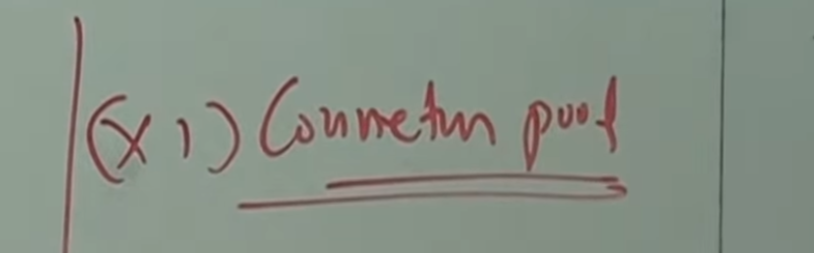 (xi) Connection pool